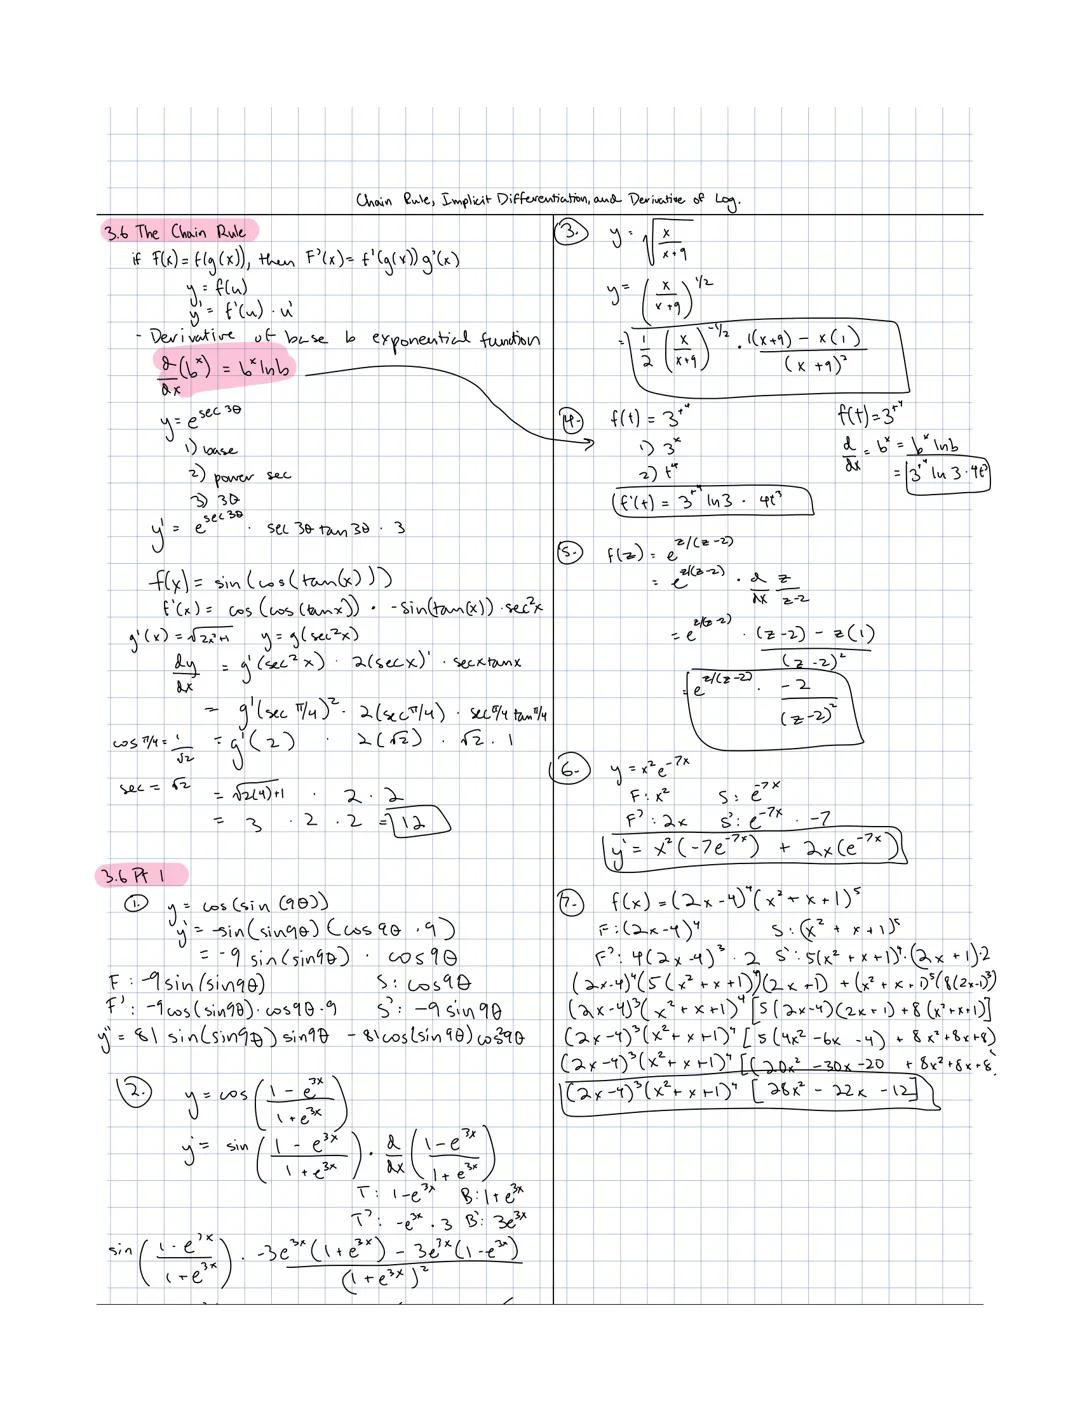 Chain Rule, Implicit Differentiation, and Derivative of Log.
3.6 The Chain Rule
if F(x) = f(g(x)), then F'(x) = f'(g(x)) g'(x)
y = f(u)
y' = f'(u) · u'
- Derivative of base b exponential function
d/dx (b^x) = b^x ln b
y = e^(sec 3θ)
1) base
2) power sec
3) 3θ
y' = e^(sec 3θ) · sec 3θ tan 3θ · 3
f(x) = sin(cos(tan(x)))
f'(x) = cos(cos(tanx)) · -sin(tan(x)) · sec²x
g'(x) = √(2x²+1) y = g(sec²x)
dy/dx = g'(sec²x) · 2(secx)' · secxtanx
= g'(sec π/4)² · 2(sec π/4) · sec π/4 tan π/4
cos π/4 = 1/√2 = g'(2) · 2(√2) · √2 · 1
sec = √2 = √(2(4)+1) · 2 · 2
= 3 · 2 · 2 = 12
3.6 Pt 1
1. y = cos(sin(9θ))
y' = -sin(sin9θ) (cos 9θ · 9)
= -9 sin(sin9θ) · cos9θ
F: -9sin(sin9θ) S: cos9θ
F': -9cos(sin9θ) · cos9θ · 9 S': -9 sin9θ
y'' = 81 sin(sin9θ) sin9θ - 81cos(sin9θ) cos²9θ
2. y = cos((1 - e^(3x))/(1 + e^(3x)))
y' = sin((1 - e^(3x))/(1 + e^(3x))) · d/dx ((1 - e^(3x))/(1 + e^(3x)))
T: 1-e^(3x) B: 1+e^(3x)
T': -e^(3x) · 3 B': 3e^(3x)
sin((1 - e^(3x))/(1 + e^(3x))) · (-3e^(3x)(1+e^(3x)) - 3e^(3x)(1-e^(3x)))/(1+e^(3x))²
3. y = √(x/(x+9))
y = (x/(x+9))^(1/2)
= 1/2 (x/(x+9))^(-1/2) · (1(x+9) - x(1))/(x+9)²
4. f(t) = 3^(t^4)
1) 3^x
2) t^4
f'(t) = 3^(t^4) ln3 · 4t³
f(t) = 3^(t^4)
d/dx = b^x = b^x ln b
= 3^(t^4) ln 3 · 4t³
5. f(z) = e^(z/(z-2))
= e^(z/(z-2)) · d/dx z/(z-2)
= e^(z/(z-2)) · ((z-2) - z(1))/(z-2)²
= e^(z/(z-2)) · -2/(z-2)²
6. y = x²e^(-7x)
F: x² S: e^(-7x)
F': 2x S': e^(-7x) · -7
y' = x²(-7e^(-7x)) + 2x(e^(-7x))
7. f(x) = (2x-4)^4 (x²+x+1)^5
F: (2x-4)^4 S: (x²+x+1)^5
F': 4(2x-4)³ · 2 S': 5(x²+x+1)^4 · (2x+1) · 2
(2x-4)^4(5(x²+x+1)^4)(2x+1) + (x²+x+1)^5(8(2x-1)³)
(2x-4)³(x²+x+1)^4 [5(2x-4)(2x+1) + 8(x²+x+1)]
(2x-4)³(x²+x+1)^4 [5(4x²-6x-4) + 8x²+8x+8)
(2x-4)³(x²+x+1)^4 [(20x²-30x-20 + 8x²+8x+8
(2x-4)³(x²+x+1)^4 [28x² - 22x - 12]